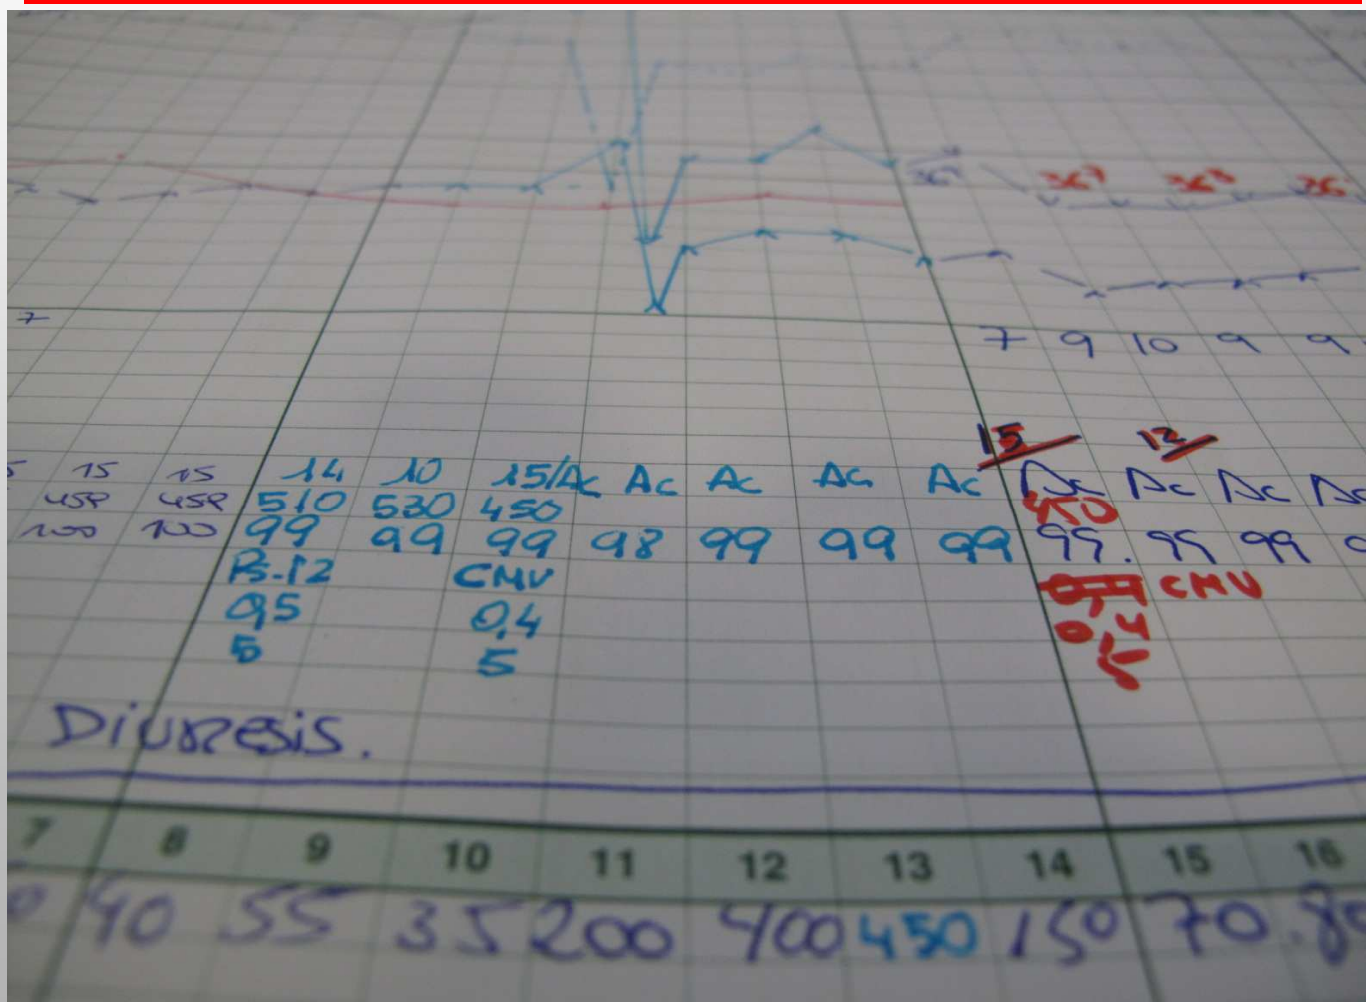 36⁷ 36⁷ 36⁵ 36
7
7 9 10 9 9
15 12
15 15 14 10 15/Ac Ac Ac Ac Ac Ac Ac Ac Ac
458 458 510 530 450 450
100 100 99 99 99 98 99 99 99 99. 99 99
Ps-12 CMV CMV
0,5 0,4 0,4
5 5 5
Diuresis.
7 8 9 10 11 12 13 14 15 16
40 55 35 200 400 450 150 70 80